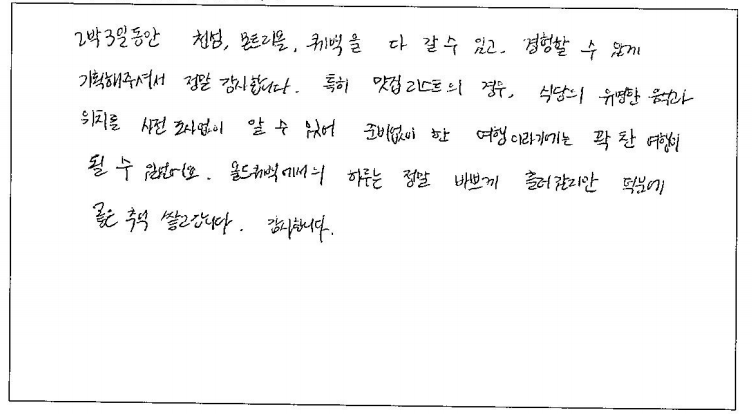 2박3일동안 천섬, 몬트리올, 퀘백을 다 갈 수 있고, 경험할 수 있게
기획해주셔서 정말 감사합니다. 특히 맛집 리스트의 경우, 식당의 유명한 음식과
위치를 사전 조사없이 알 수 있어 준비없이 한 여행이라기에는 꽉 찬 여행이
될 수 있었어요. 올드퀘백에서의 하루는 정말 바쁘게 흘러갔지만 덕분에
좋은 추억 쌓고갑니다. 감사합니다.